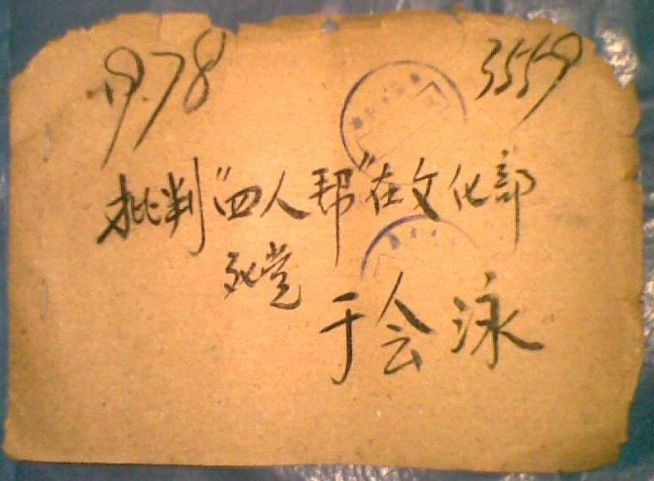 1978
3559
批判“四人帮”在文化部
死党
于会泳